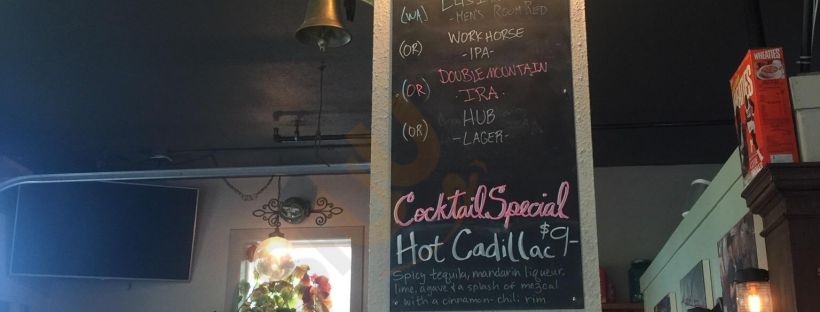 (WA)
-MEN'S ROOM RED
(OR) WORKHORSE
-IPA-
(OR) DOUBLE MOUNTAIN
-IRA-
(OR) HUB
-LAGER-
Cocktail Special
Hot Cadillac $9-
Spicy tequila, mandarin liqueur,
lime, agave & a splash of mezcal
with a cinnamon-chili rim
WHEATIES